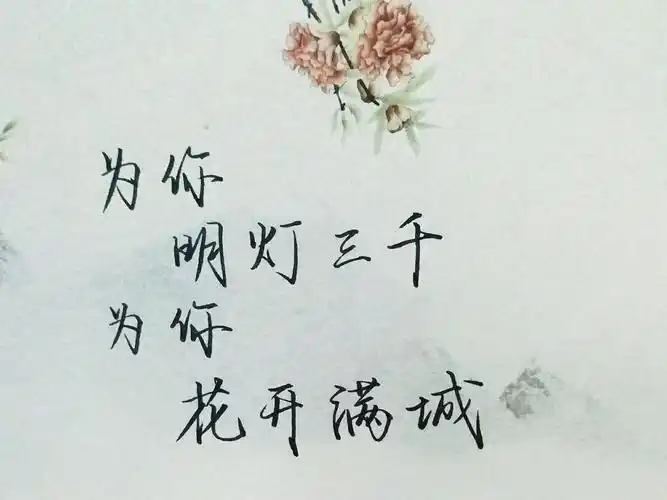 为你
明灯三千
为你
花开满城